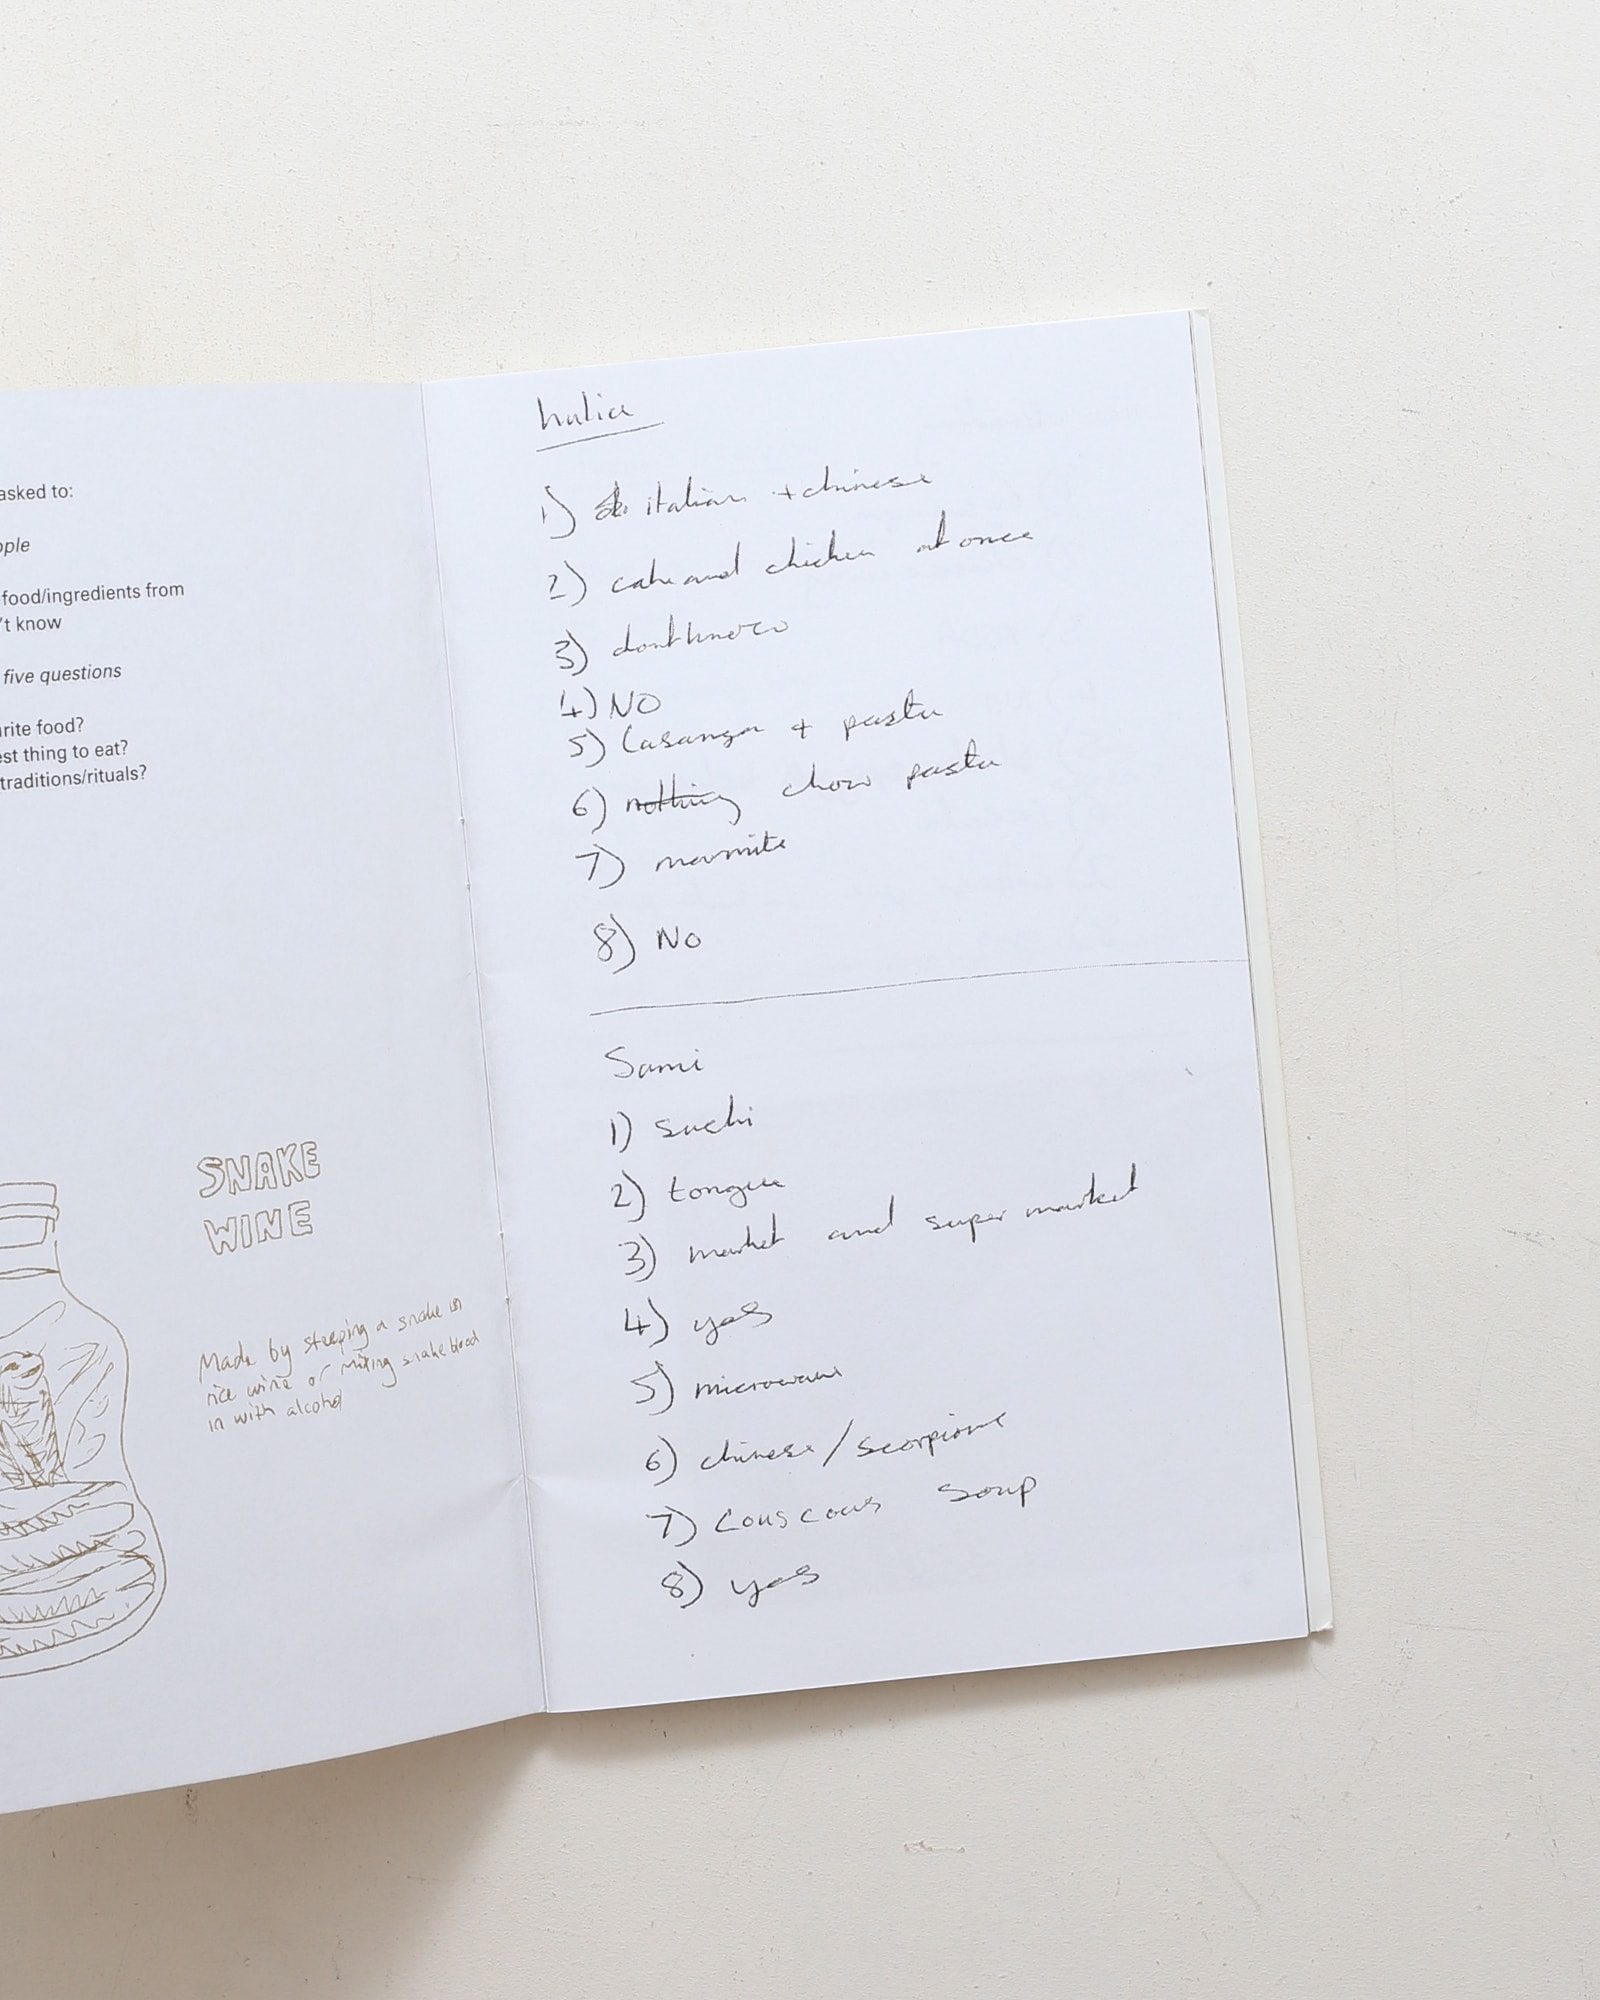 asked to:
ople
food/ingredients from
't know
five questions
urite food?
est thing to eat?
traditions/rituals?
SNAKE
WINE
Made by steeping a snake in
rice wine or mixing snake blood
in with alcohol
1) italian + chinese
2) cake and chicken at once
3) dont know
4) NO
5) Lasanga + pasta
6) nothing chow pasta
7) marmite
8) No
Sami
1) suchi
2) tongue
3) market and super market
4) yes
5) microwave
6) chinese/scorpions
7) Couscous soup
8) yes